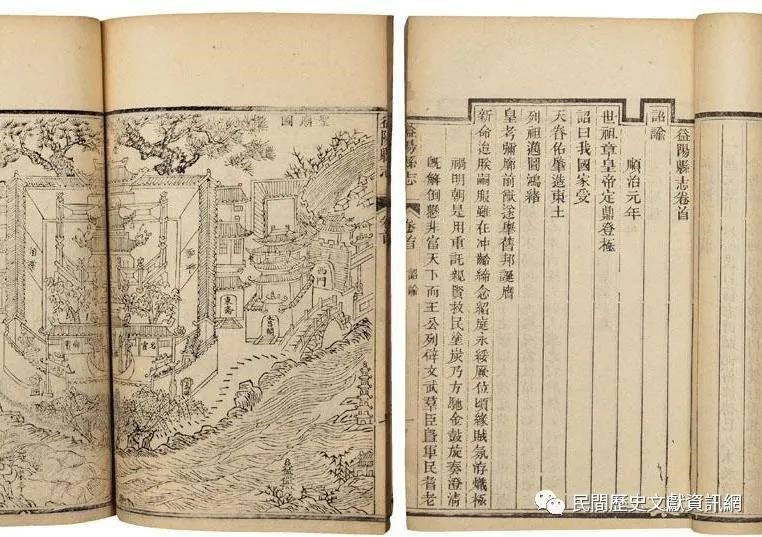 益陽縣志卷首
詔諭
順治元年
世祖章皇帝定鼎登極
詔曰我國家受
天眷佑肇造東土
列祖邁圖鴻緒
皇考彌廓前猷遂舉舊邦誕膺
新命迨朕嗣服雖在冲齡締念紹庭永綏厥位頃緣賊氛洊熾極
禍明朝是用重託親賢救民塗炭乃方馳金鼓旋奏澄清
既解倒懸非富天下而王公列辟文武羣臣曁軍民耆老
益陽縣志 卷首 詔諭
益陽縣志 卷首
聖廟圖
西門
東齋
民間歷史文獻資訊網